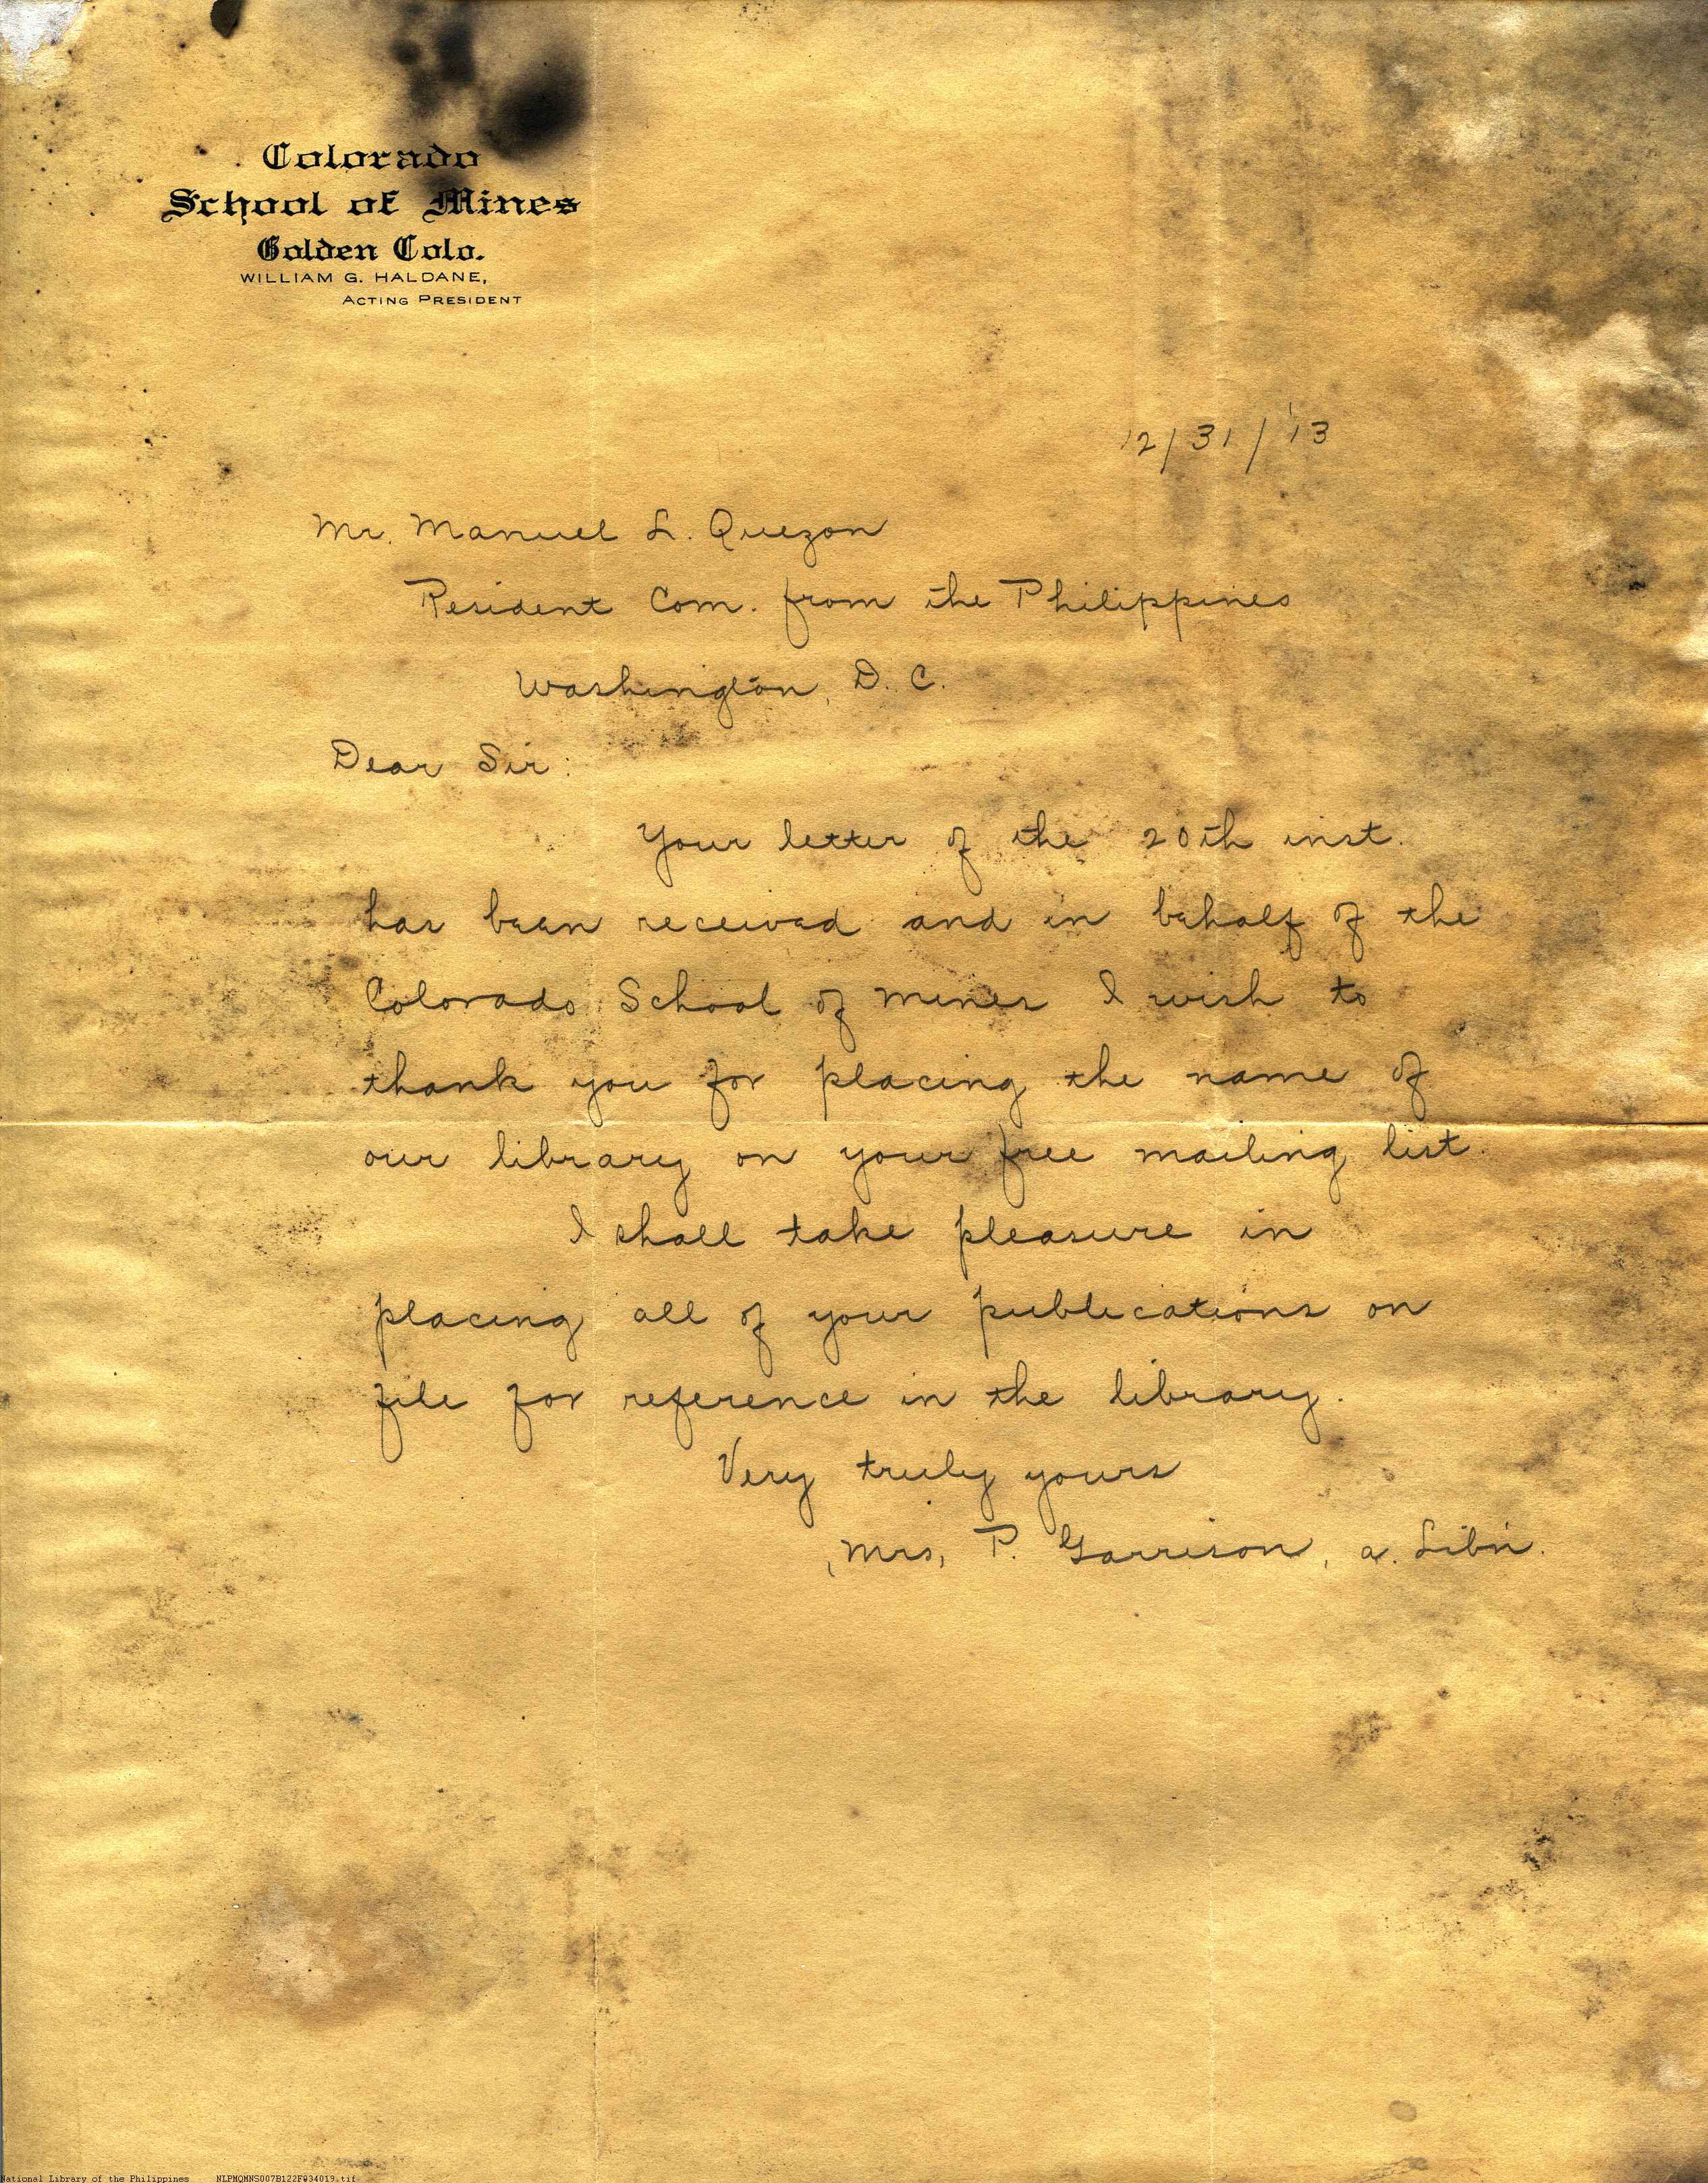 Colorado
School of Mines
Golden Colo.
WILLIAM G. HALDANE,
ACTING PRESIDENT
12/31/'13
Mr. Manuel L. Quezon
Resident Com. from the Philippines
Washington, D. C.
Dear Sir:
Your letter of the 20th inst.
has been received and in behalf of the
Colorado School of Mines I wish to
thank you for placing the name of
our library on your free mailing list.
I shall take pleasure in
placing all of your publications on
file for reference in the library.
Very truly yours
(Mrs, P. Garrison, a. Libn.
National Library of the Philippines NLPMQMNS007B122F034019.tif